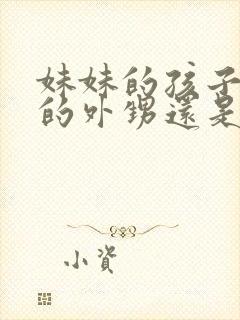 妹妹的孩子
的外甥還是
小資